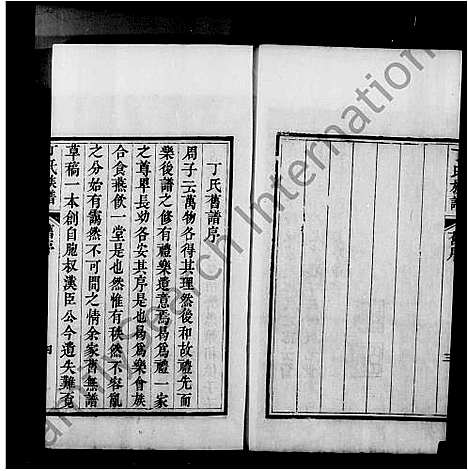 丁氏舊譜序
周子云萬物各得其理然後和故禮先而
樂後譜之修有禮樂遺意焉曷爲禮一家
之尊卑長幼各安其序是也曷爲樂會族
合食燕飲一堂是也然惟有秩然不容亂
之分始有靄然不可間之情余家舊無譜
草稿一本創自胞叔漢臣公今遺失難覓
丁氏族譜
舊序
四